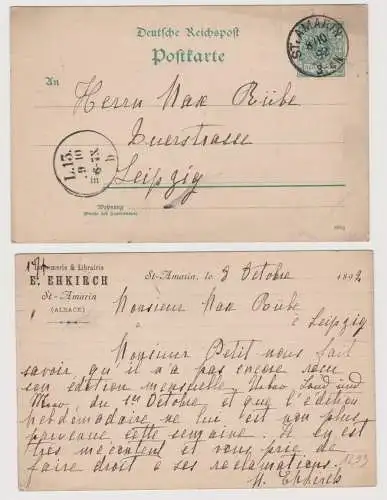 Deutsche Reichspost
Postkarte
An
ST. AMARIN
8/10
92
Herrn Max Rübe
L.13.
9 10
6-7N.
b
Leipzig
Wohnung
(Straße und Hausnummer)
Imprimerie & Librairie
E. EHKIRCH
St-Amarin
(ALSACE)
St-Amarin, le 8 Octobre 1892
Monsieur Max Rübe
à Leipzig
Monsieur Petit nous fait
savoir qu'il n'a pas encore reçu
son édition mensuelle Ueber Land und
Meer, du 1er Octobre et que l'édition
hebdomadaire ne lui est non plus
parvenue cette semaine. Il en est
très mécontent et vous prie de
faire droit à ses réclamations.
E. Ehkirch